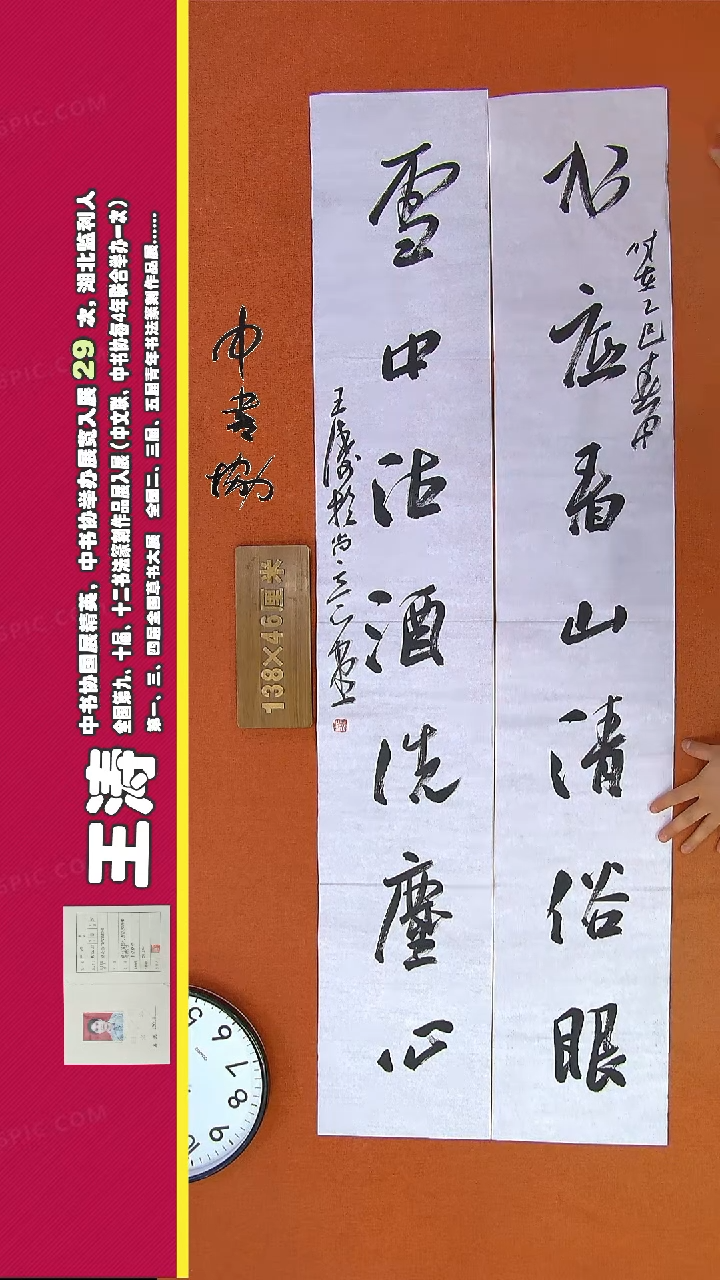 王涛
中书协国展精英，中书协举办展览入展 29 次，湖北监利人
全国第九、十届、十二书法篆刻作品展入展（中文联、中书协每4年联合举办一次）
第一、三、四届全国草书大展 全国二、三届、五届青年书法篆刻作品展......
看山清俗眼
时在乙巳春中
雪中沽酒洗塵心
王涛於尚
中書協
138×46厘米
5 6 7 8 9